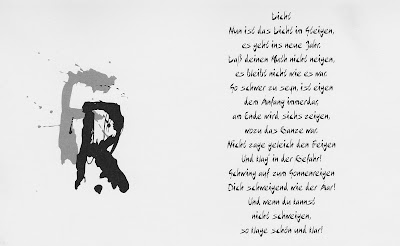 Licht
Nun ist das Licht im Steigen,
es geht ins neue Jahr.
Laß deinen Muth nicht neigen,
es bleibt nicht wie es war.
So schwer zu seyn, ist eigen
dem Anfang immerdar,
am Ende wird sichs zeigen,
wozu das Ganze war.
Nicht zage gleich den Feigen
Und klag in der Gefahr!
Schwing auf zum Sonnenreigen
Dich schweigend wie der Aar!
Und wenn du kannst
nicht schweigen,
so klage schön und klar!
FR